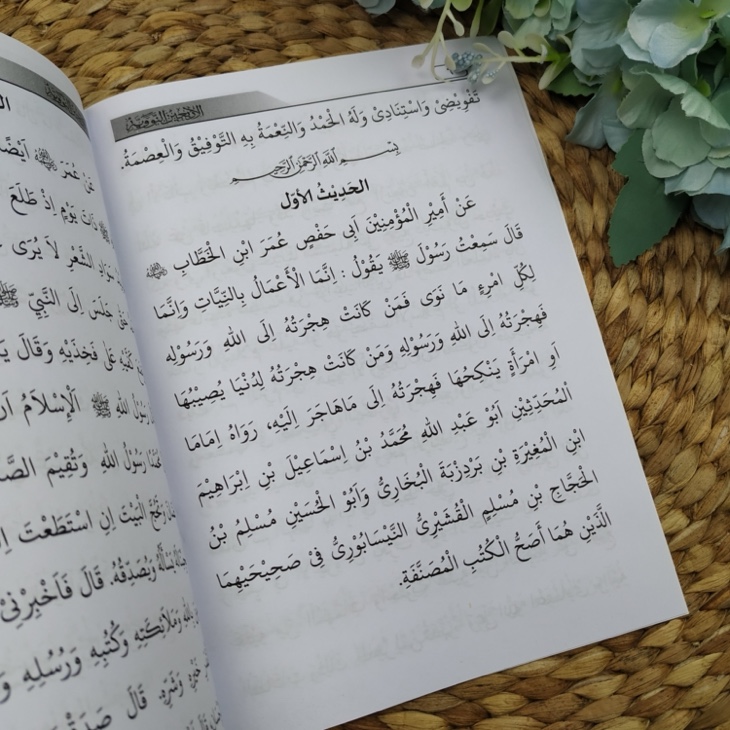 الأربعين النووية
تَفْوِيْضِيْ وَاسْتِنَادِيْ وَلَهُ الْحَمْدُ وَالنِّعْمَةُ بِهِ التَّوْفِيْقُ وَالْعِصْمَةُ.
بِسْمِ اللّٰهِ الرَّحْمٰنِ الرَّحِيْمِ
الحَدِيْثُ الأوّل
عَنْ أَمِيْرِ الْمُؤْمِنِيْنَ اَبِى حَفْصٍ عُمَرَ ابْنِ الْخَطَّابِ ﷺ
قَالَ سَمِعْتُ رَسُوْلَ ﷺ يَقُوْلُ : اِنَّمَا الْأَعْمَالُ بِالنِّيَّاتِ وَاِنَّمَا
لِكُلِّ امْرِءٍ مَا نَوَى فَمَنْ كَانَتْ هِجْرَتُهُ اِلَى اللهِ وَرَسُوْلِهِ
فَهِجْرَتُهُ اِلَى اللهِ وَرَسُوْلِهِ وَمَنْ كَانَتْ هِجْرَتُهُ لِدُنْيَا يُصِيْبُهَا
اَوِ امْرَأَةٍ يَنْكِحُهَا فَهِجْرَتُهُ اِلَى مَاهَاجَرَ اِلَيْهِ، رَوَاهُ اِمَامَا
اْلمُحَدِّثِيْنَ اَبُوْ عَبْدِ اللهِ مُحَمَّدُ بْنُ اِسْمَاعِيْلَ بْنِ اِبْرَاهِيْمَ
ابْنِ الْمُغِيْرَةِ بْنِ بَرْدِزْبَةَ الْبُخَارِىُّ وَاَبُو الْحُسَيْنِ مُسْلِمُ بْنُ
الْحَجَّاجِ بْنِ مُسْلِمٍ الْقُشَيْرِىُّ النَّيْسَابُوْرِىُّ فِىْ صَحِيْحَيْهِمَا
الَّذَيْنِ هُمَا أَصَحُّ الْكُتُبِ الْمُصَنَّفَةِ.
عَنْ عُمَرَ
ذَاتَ يَوْمٍ اِذْ طَلَعَ
سَوَادِ الشَّعْرِ لاَ يُرَى
جَلَسَ اِلَى النَّبِيِّ ﷺ
عَلَى فَخِذَيْهِ وَقَالَ
رَسُوْلُ اللهِ ﷺ اَلْإِسْلَامُ اَنْ
رَسُوْلُ اللهِ وَتُقِيْمَ
الْبَيْتَ اِنِ اسْتَطَعْتَ
وَيُصَدِّقُهُ. قَالَ فَاَخْبِرْنِيْ
وَمَلَائِكَتِهِ وَكُتُبِهِ وَرُسُلِهِ
وَشَرِّهِ. قَالَ